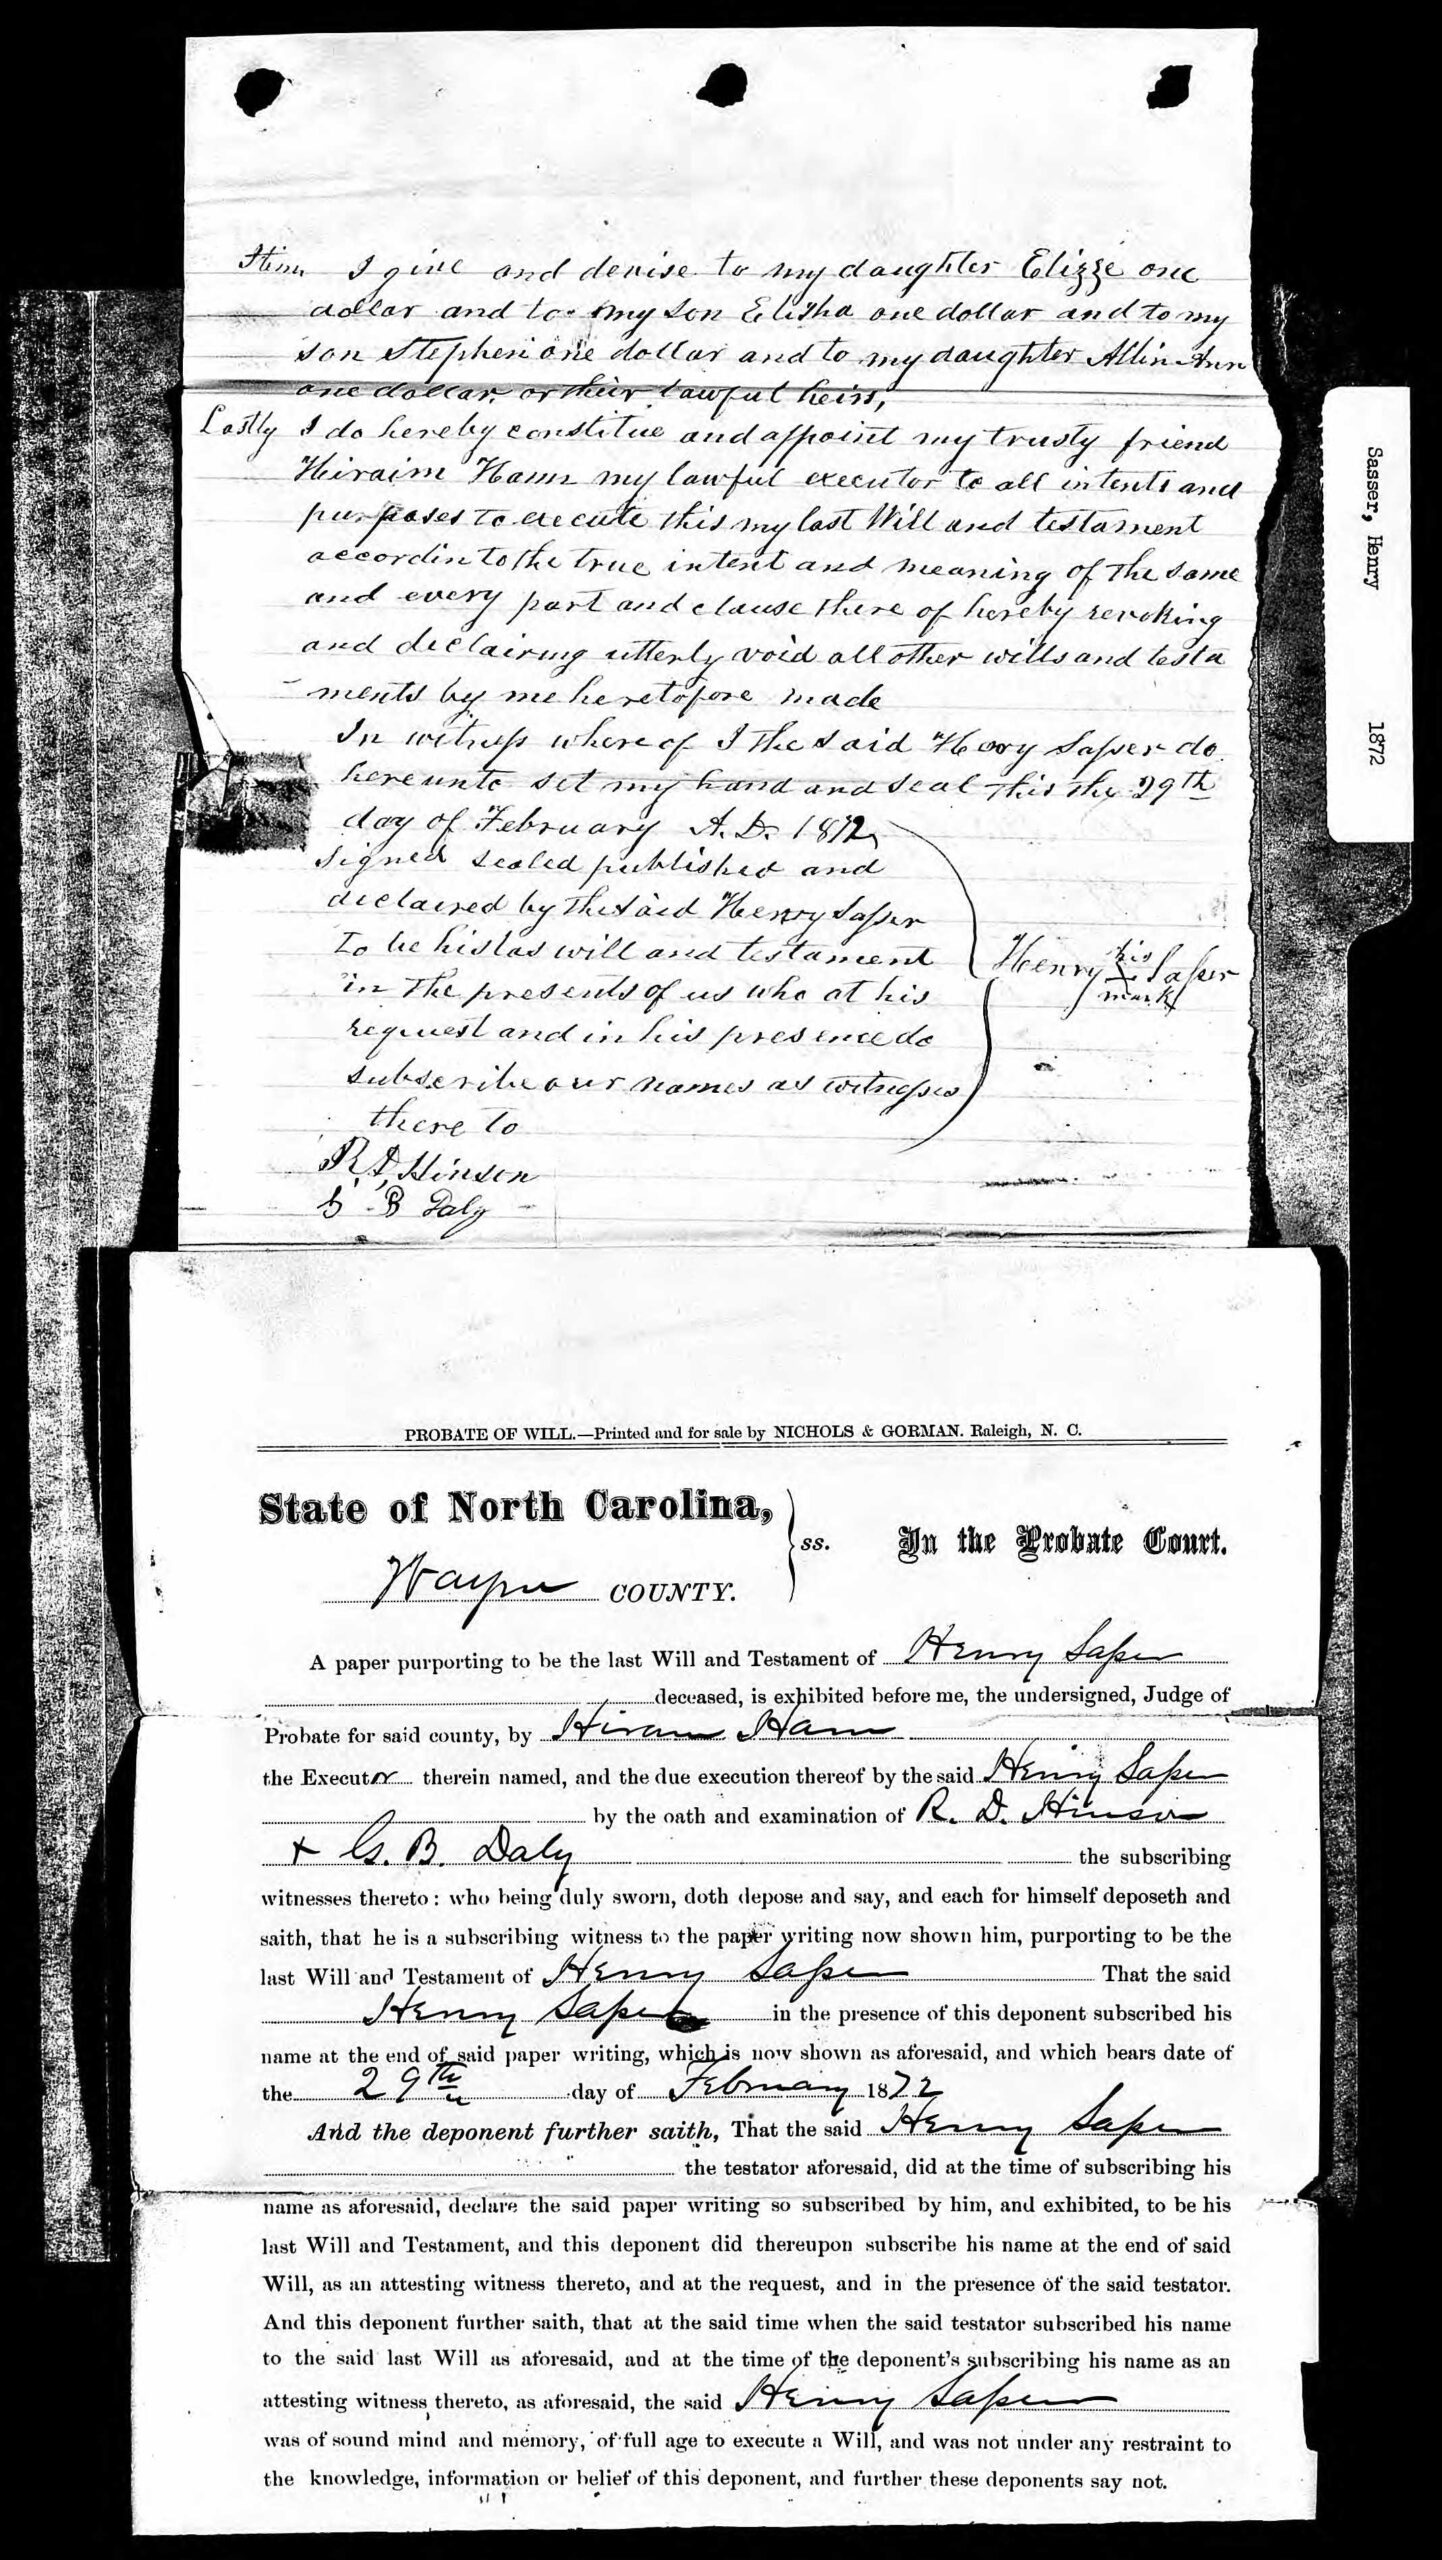 Item I give and devise to my daughter Elizze one
dollar and to my son Elisha one dollar and to my
son Stephen one dollar and to my daughter Allin Ann
one dollar or their lawful heirs,
Lastly I do hereby constitue and appoint my trusty friend
Hiraim Ham my lawful executor to all intents and
purposes to execute this my last Will and testament
accordin to the true intent and meaning of the same
and every part and clause there of hereby revoking
and declairing utterly void all other wills and testa
ments by me heretofore made
In witness where of I the said Henry Sasser do
hereunto set my hand and seal this the 29th
day of February A. D. 1872
Signed sealed published and
declaired by the said Henry Sasser
to be his las will and testament
in the presents of us who at his
request and in his presence do
subscribe our names as witnesses
there to
Henry his X mark Sasser
R. D. Hinson
G B Daly
Sasser, Henry 1872
PROBATE OF WILL.—Printed and for sale by NICHOLS & GORMAN. Raleigh, N. C.
State of North Carolina, ss. In the Probate Court.
Wayne COUNTY.
A paper purporting to be the last Will and Testament of Henry Sasser
deceased, is exhibited before me, the undersigned, Judge of
Probate for said county, by Hiram Ham
the Executor therein named, and the due execution thereof by the said Henry Sasser
by the oath and examination of R. D. Hinson
+ G. B. Daly the subscribing
witnesses thereto: who being duly sworn, doth depose and say, and each for himself deposeth and
saith, that he is a subscribing witness to the paper writing now shown him, purporting to be the
last Will and Testament of Henry Sasser That the said
Henry Sasser in the presence of this deponent subscribed his
name at the end of said paper writing, which is now shown as aforesaid, and which bears date of
the 29th day of February 1872
And the deponent further saith, That the said Henry Sasser
the testator aforesaid, did at the time of subscribing his
name as aforesaid, declare the said paper writing so subscribed by him, and exhibited, to be his
last Will and Testament, and this deponent did thereupon subscribe his name at the end of said
Will, as an attesting witness thereto, and at the request, and in the presence of the said testator.
And this deponent further saith, that at the said time when the said testator subscribed his name
to the said last Will as aforesaid, and at the time of the deponent's subscribing his name as an
attesting witness thereto, as aforesaid, the said Henry Sasser
was of sound mind and memory, of full age to execute a Will, and was not under any restraint to
the knowledge, information or belief of this deponent, and further these deponents say not.